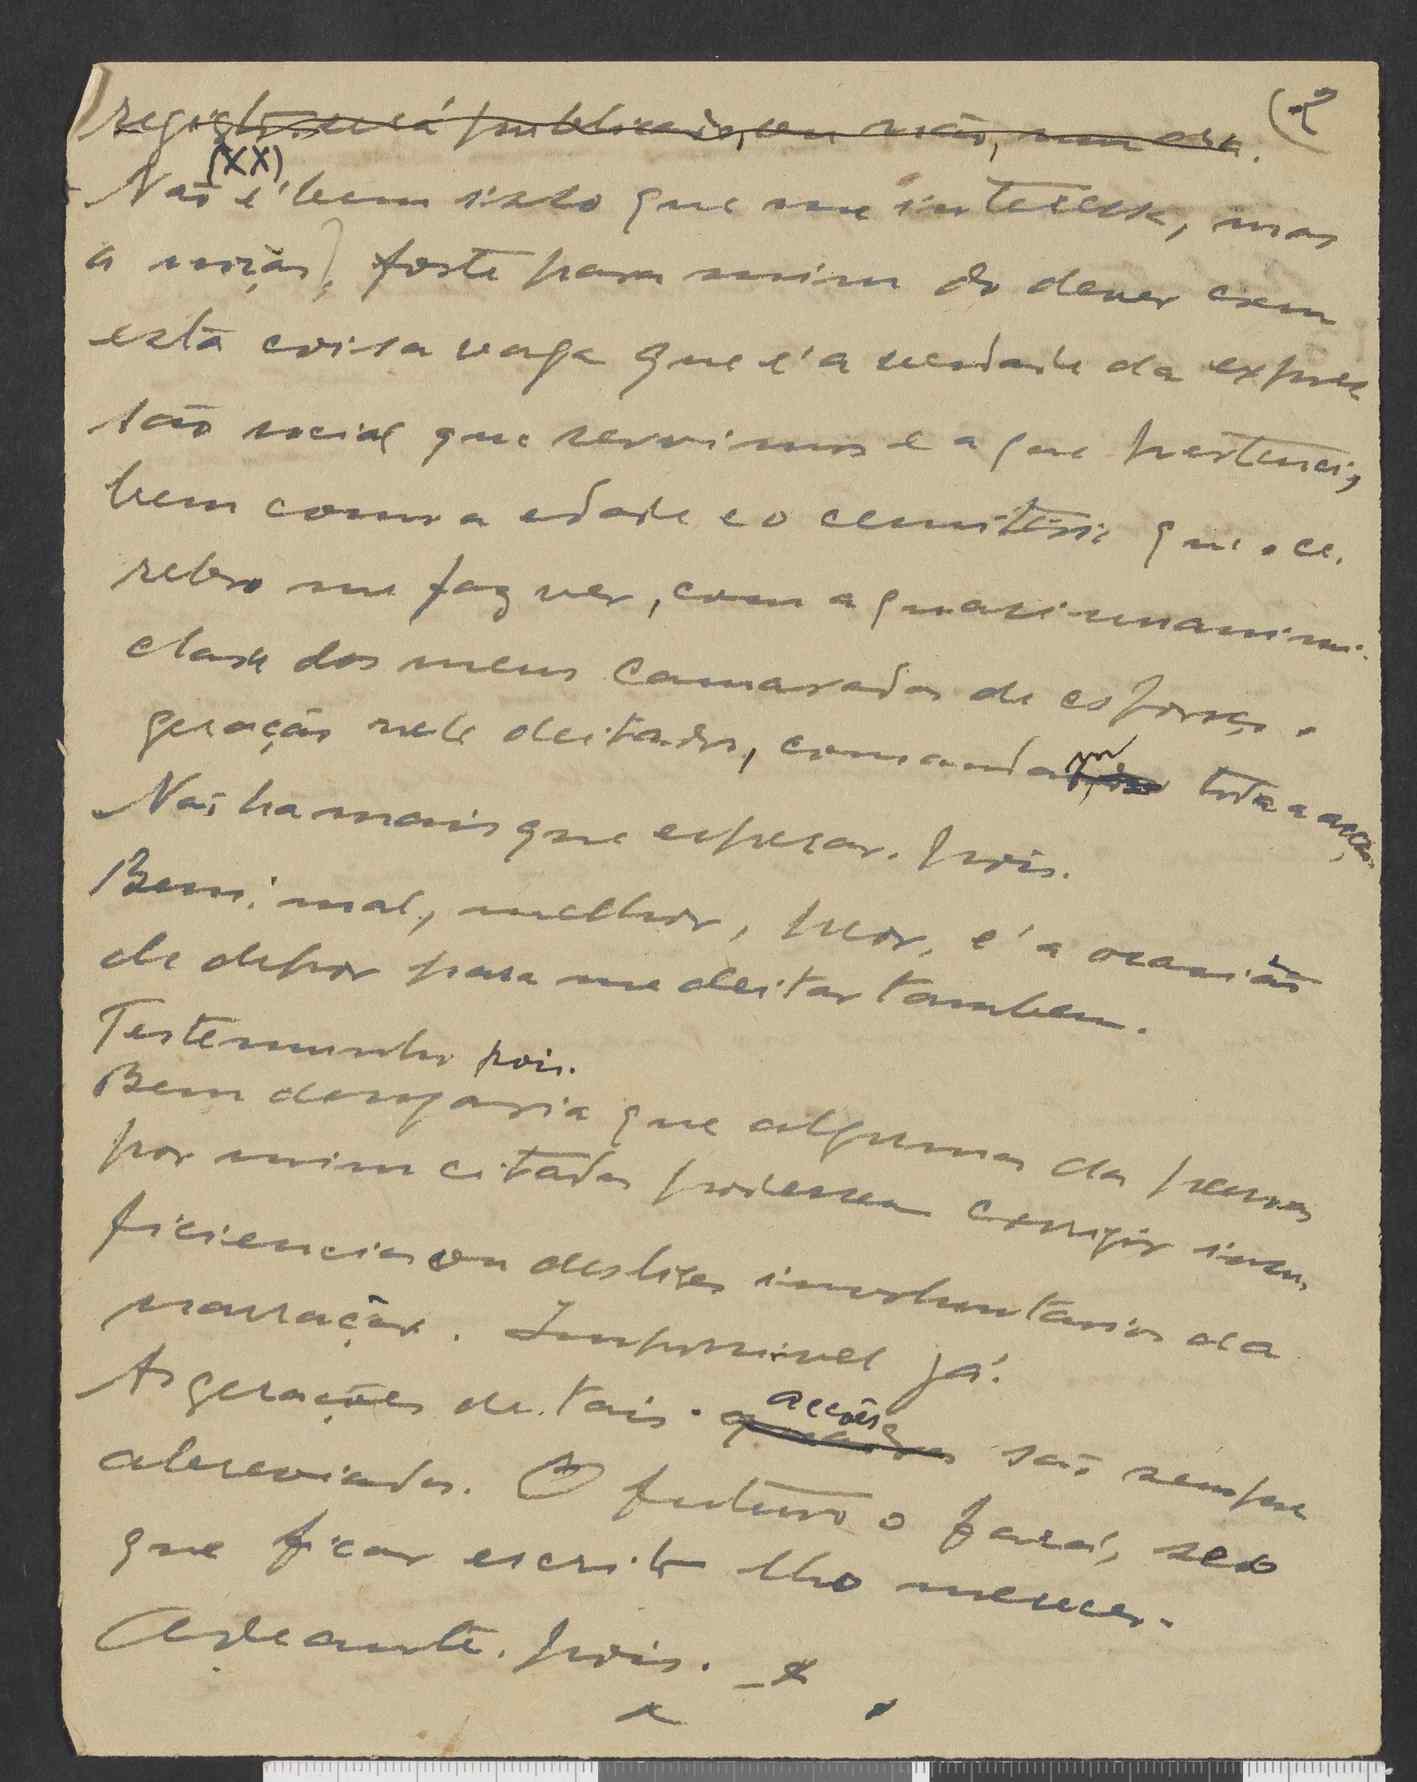 (2
registo será publicado, ou não, um dia.
(XX)
Não é bem isso que me interessa, mas
a noção, forte para mim do dever com
esta coisa vaga que é a verdade da expres
são social que servimos e a que pertenci,
bem como a edade e o cemiterio que o ce.
rebro me faz ver, com a quasi unanimi.
dade dos meus camaradas de esforço e
geração nele deitados, comandam toda a acção.
Não ha mais que esperar. pois.
Bem, mal, melhor, peor, é a ocasião
de depor para me deitar tambem.
Testemunho pois.
Bem desejaria que algumas das pessoas
por mim citadas podessem corrigir insu,
ficiencias ou deslises involuntarios da
narração. Impossivel já.
As gerações de tais acções são sempre
abreviadas. O futuro o fará, se o
que ficar escrito lho merecer.
Adeante. pois.